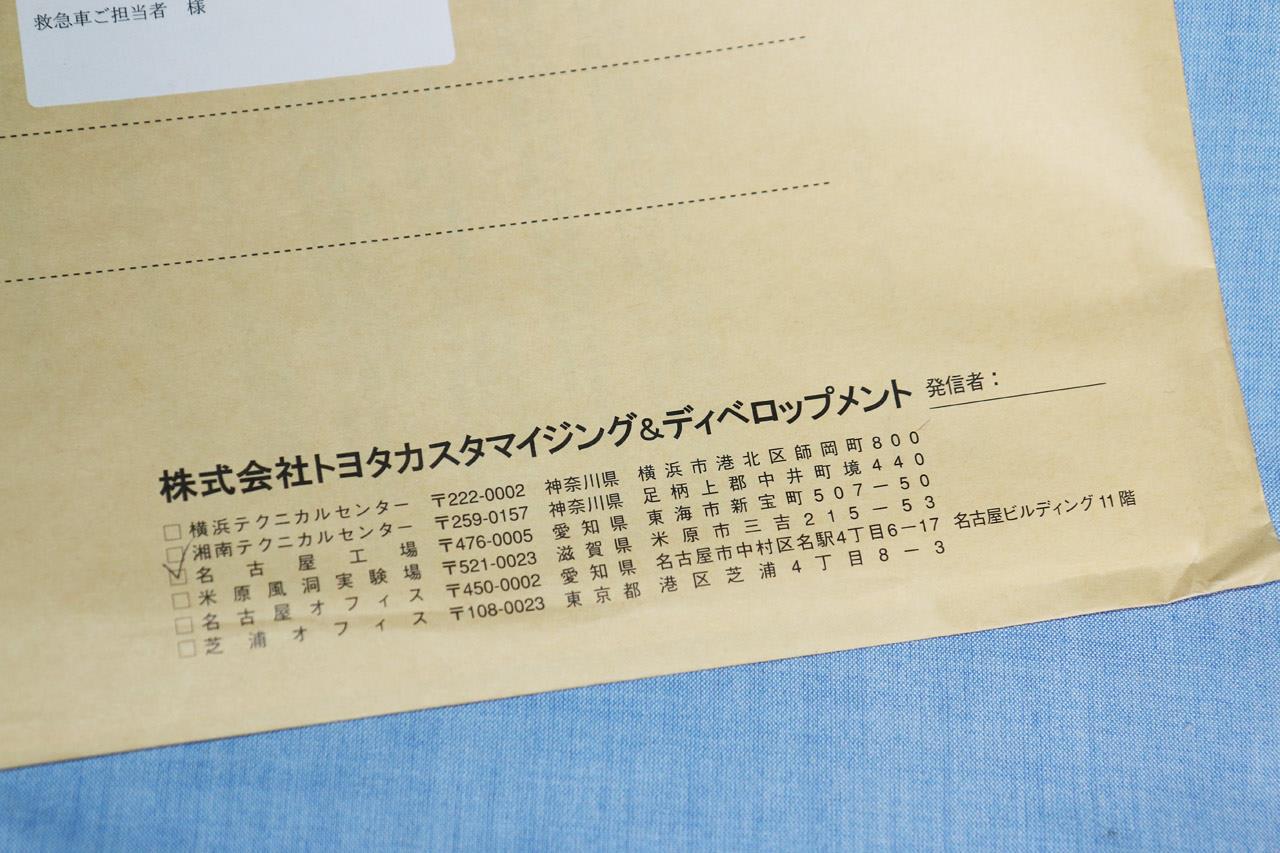 救急車ご担当者 様
株式会社トヨタカスタマイジング&ディベロップメント 発信者：
□ 横浜テクニカルセンター 〒222-0002 神奈川県 横浜市港北区師岡町800
□ 湘南テクニカルセンター 〒259-0157 神奈川県 足柄上郡中井町境440
☑ 名古屋工場 〒476-0005 愛知県 東海市新宝町507－50
□ 米原風洞実験場 〒521-0023 滋賀県 米原市三吉215－53
□ 名古屋オフィス 〒450-0002 愛知県 名古屋市中村区名駅4丁目6－17 名古屋ビルディング11階
□ 芝浦オフィス 〒108-0023 東京都 港区芝浦4丁目8－3